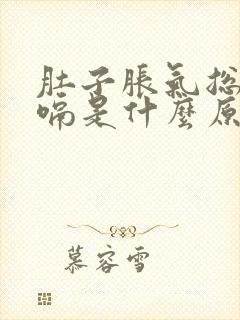 肚子脹氣總
嗝是什麼原
慕容雪